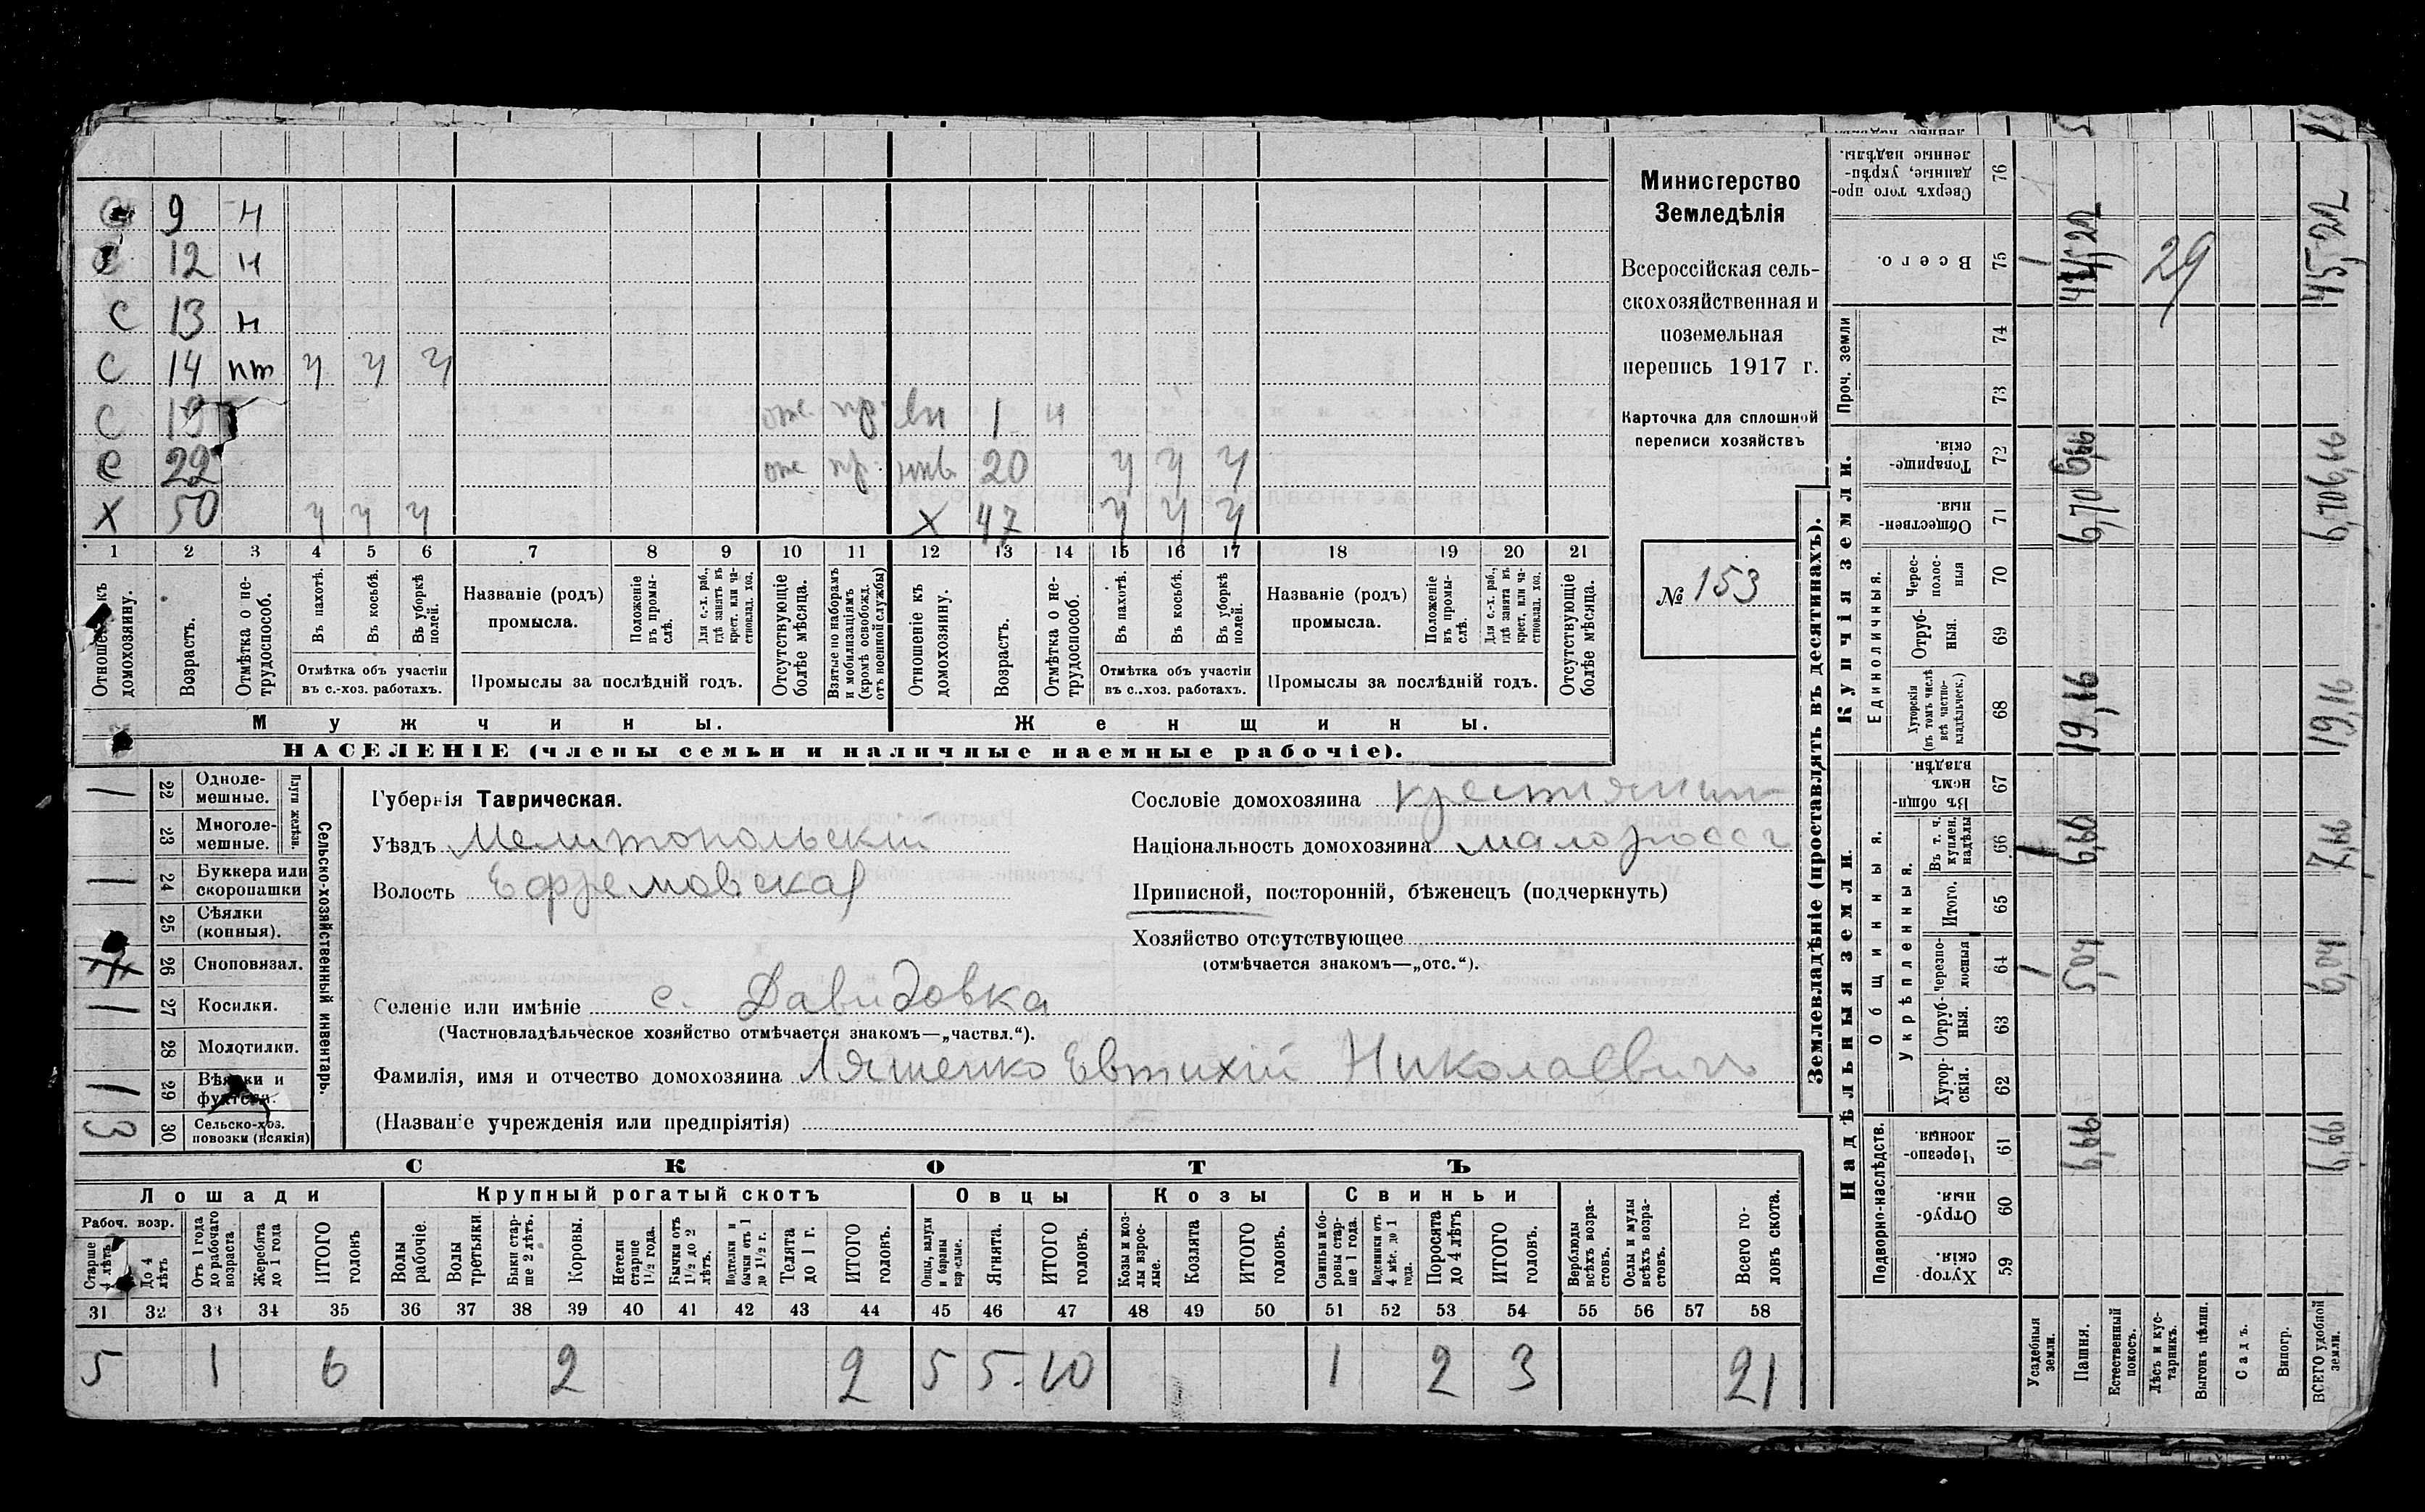 С 9 н
С 12 н
С 13 н
С 14 пт ч ч ч
С 19 вн 1 н
С 22 20 ч ч ч
Х 50 ч ч ч Х 47 ч ч ч
1 2 3 4 5 6 7 8 9 10 11 12 13 14 15 16 17 18 19 20 21
Отношеніе къ домохозяину.
Возрастъ.
Отмѣтка о не-
трудоспособ.
Въ пахотѣ.
Въ косьбѣ.
Въ уборкѣ
полей.
Отмѣтка объ участіи
въ с.-хоз. работахъ.
Названіе (родъ)
промысла.
Положеніе
въ промы-
слѣ.
Для с.-х. раб.,
гдѣ занятъ въ
крест. или ча-
стновлад. хоз.
Промыслы за послѣдній годъ.
Отсутствующіе
болѣе мѣсяца.
Взятые по наборамъ
и мобилизаціямъ
(кромѣ освобожд.
отъ военной службы)
Отношеніе къ
домохозяину.
Возрастъ.
Отмѣтка о не-
трудоспособ.
Въ пахотѣ.
Въ косьбѣ.
Въ уборкѣ
полей.
Отмѣтка объ участіи
въ с..хоз. работахъ.
Названіе (родъ)
промысла.
Положеніе
въ промы-
слѣ.
Для с.-х. раб.,
гдѣ занята въ
крест. или ча-
стновлад. хоз.
Промыслы за послѣдній годъ.
Отсутствующіе
болѣе мѣсяца.
Мужчины.
Женщины.
НАСЕЛЕНІЕ (члены семьи и наличные наемные рабочіе).
Министерство
Земледѣлія
Всероссійская сель-
скохозяйственная и
поземельная
перепись 1917 г.
Карточка для сплошной
переписи хозяйствъ
№ 153
Сельско-хозяйственный инвентарь.
Плуги желѣзн.
1 22 Одноле-
мешные.
23 Многоле-
мешные.
1 24 Буккера или
скоропашки
25 Сѣялки
(конныя).
26 Сноповязал.
1 27 Косилки.
28 Молотилки.
1 29 Вѣялки и
фухтеля.
3 30 Сельско-хоз.
повозки (всякія)
Губернія Таврическая.
Уѣздъ Мелитопольскій
Волость Ефремовская
Сословіе домохозяина крестьянин
Національность домохозяина малоросс
Приписной, посторонній, бѣженецъ (подчеркнуть)
Хозяйство отсутствующее
(отмѣчается знакомъ—„отс.“).
Селеніе или имѣніе с. Давидовка
(Частновладѣльческое хозяйство отмѣчается знакомъ—„частвл.“).
Фамилія, имя и отчество домохозяина Ляшенко Евтихій Николаевич
(Названіе учрежденія или предпріятія)
СКОТЪ
Лошади
Крупный рогатый скотъ
Овцы
Козы
Свиньи
Рабоч. возр.
Старше
4 лѣтъ
До 4
лѣтъ
Отъ 1 года
до рабочаго
возраста
Жеребята
до 1 года
ИТОГО
головъ
Волы
рабочіе.
Волы
третьяки.
Быки стар-
ше 2 лѣтъ.
Коровы.
Нетели
старше
1½ года.
Бычки отъ
1½ до 2
лѣтъ.
Подтелки и
бычки отъ 1
до 1½ г.
Телята
до 1 г.
ИТОГО
головъ.
Овцы, валухи
и бараны
взрослые.
Ягнята.
ИТОГО
головъ.
Козы и коз-
лы взрос-
лые.
Козлята
ИТОГО
головъ.
Свиньи и бо-
ровы стар-
ше 1 года.
Подсвинки отъ
4 мѣс. до 1
года.
Поросята
до 4 лѣтъ
ИТОГО
головъ.
Верблюды
всѣхъ возра-
стовъ.
Ослы и мулы
всѣхъ возра-
стовъ.
Всего го-
ловъ скота.
31 32 33 34 35 36 37 38 39 40 41 42 43 44 45 46 47 48 49 50 51 52 53 54 55 56 57 58
5 1 6 2 2 5 5 10 1 2 3 21
Землевладѣніе (проставлять въ десятинахъ).
Надѣльныя земли.
Купчія земли.
Проч. земли
Подворно-наслѣдств.
Общинныя.
Укрѣпленныя.
Единоличныя.
Сверхъ того про-
данные, укрѣп-
ленные надѣлы.
76
Всего.
75 1 29 45,22
74
73
Товарище-
скія.
72 6,66
Обществен-
ныя.
71 6,70
Черес-
полос-
ныя
70
Отруб-
ныя.
69
Хуторскія
(въ томъ числѣ
всѣ частно-
владѣльческ.)
68 19,16 19,16
Въ общин-
номъ
владѣн.
67
Въ т. ч.
куплен.
надѣлы
66 1 6,66 7,66
Итого.
65
Черезпо-
лосныя
64 1 5,04 6,04
Отруб-
ныя.
63
Хутор-
скія.
62
Черезпо-
лосныя.
61 6,66 6,66
Отруб-
ныя.
60
Хутор-
скія.
59
Усадебныя
земли.
Пашня.
Естественный
покосъ.
Лѣсъ и кус-
тарникъ.
Выгонъ цѣлин.
Садъ.
Виногр.
ВСЕГО удобной
земли.